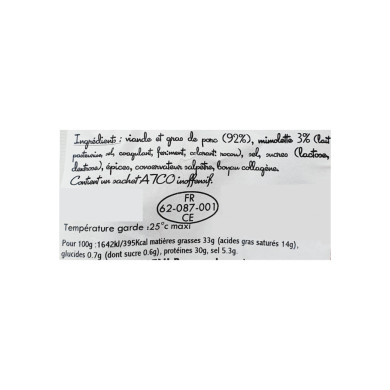 Ingrédients : viande et gras de porc (92%), mimolette 3% (lait
pasteurisé, sel, coagulant, ferment, colorant: rocou), sel, sucres (lactose,
dextrose), épices, conservateur salpêtre, boyau collagène.
Contient un sachet A7CO inoffensif.
FR
62-087-001
CE
Température garde :25°c maxi
Pour 100g :1642kJ/395Kcal matières grasses 33g (acides gras saturés 14g),
glucides 0.7g (dont sucre 0.6g), protéines 30g, sel 5.3g.